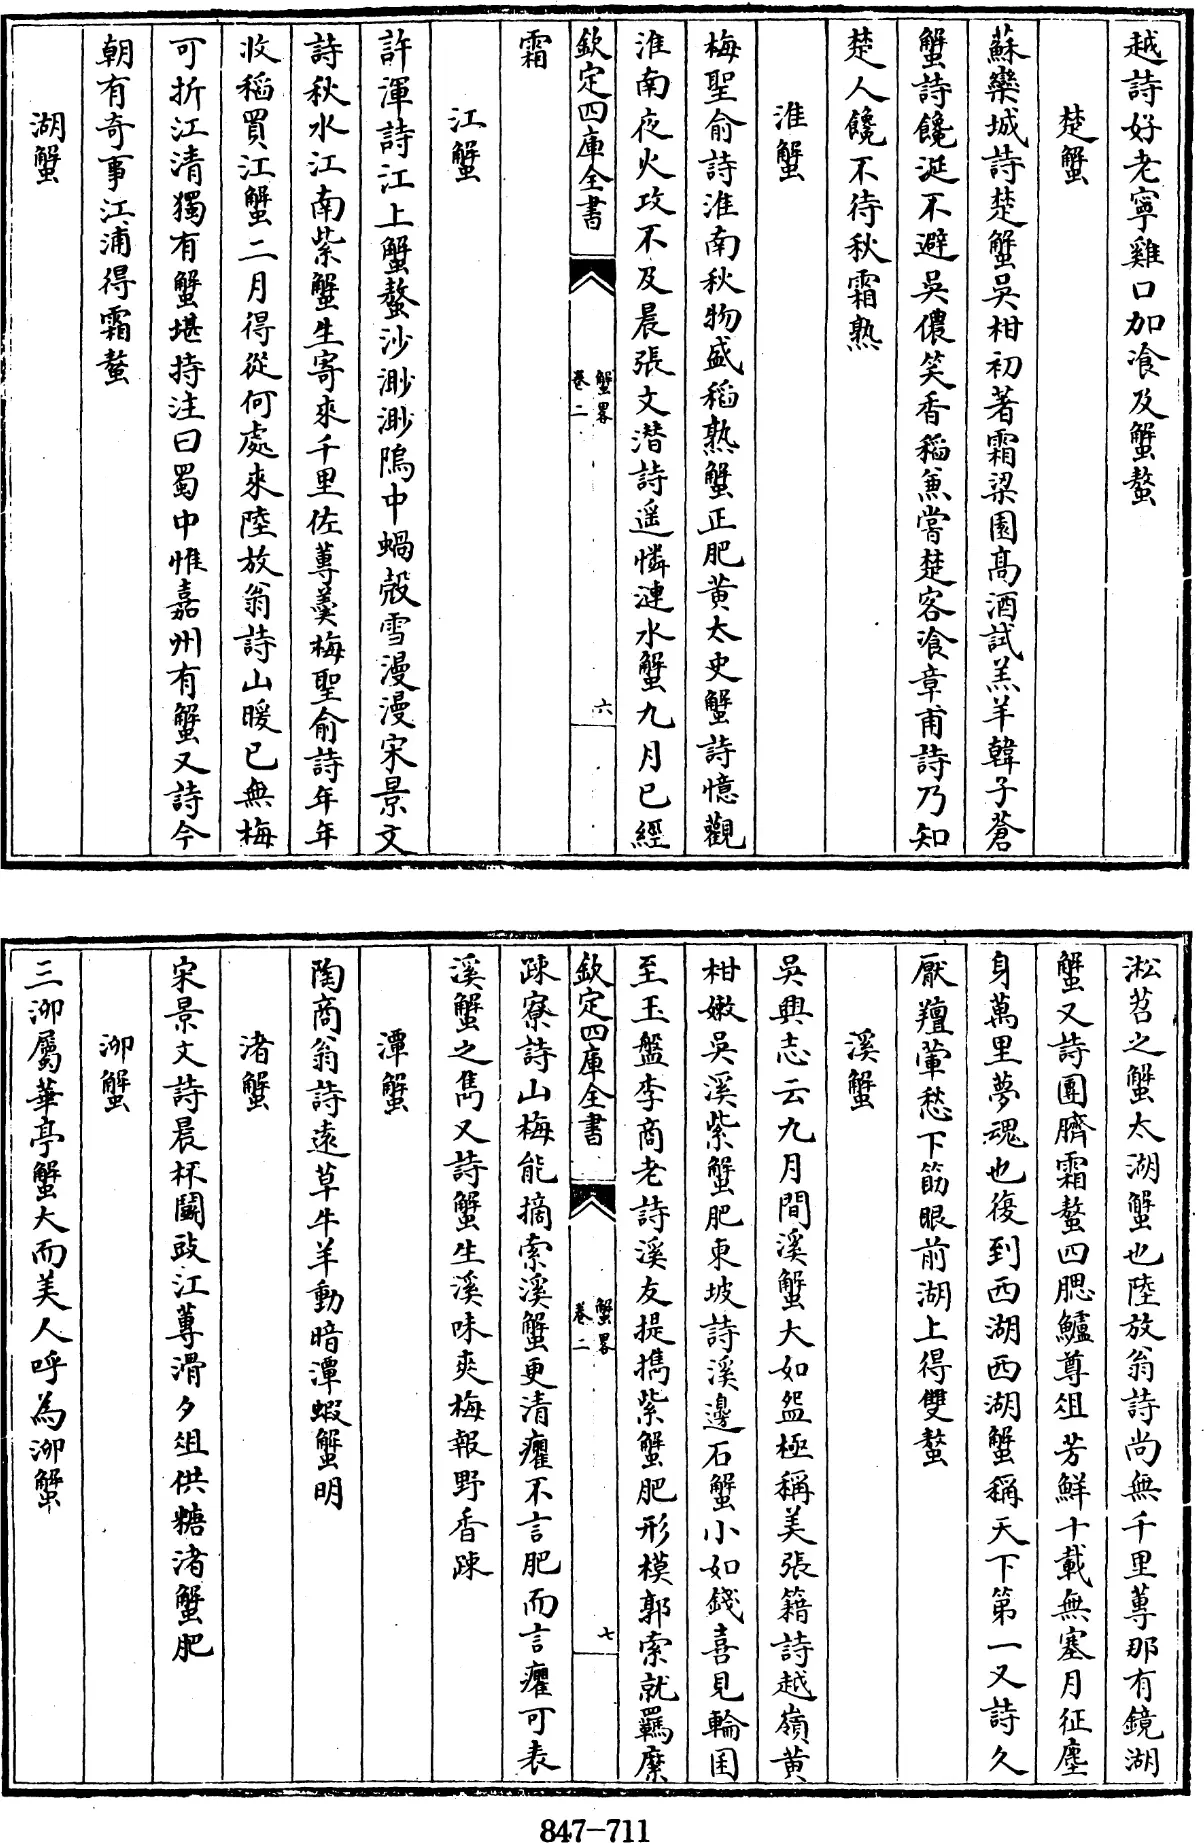 越詩好老寧雞口加飡及蟹螯
楚蟹
蘇欒城詩楚蟹吳柑初著霜梁園髙酒試羔羊韓子蒼
蟹詩饞涎不避吳儂笑香稻兼嘗楚客飡章甫詩乃知
楚人饞不待秋霜熟
淮蟹
梅聖俞詩淮南秋物盛稻熟蟹正肥黄太史蟹詩憶觀
淮南夜火攻不及晨張文潜詩遥憐漣水蟹九月已經
欽定四庫全書
蟹畧
卷二
六
霜
江蟹
許渾詩江上蟹螯沙渺渺隖中蝸殻雪漫漫宋景文
詩秋水江南紫蟹生寄來千里佐蓴羮梅聖俞詩年年
收稻買江蟹二月得從何處來陸放翁詩山暖已無梅
可折江清獨有蟹堪持注曰蜀中惟嘉州有蟹又詩今
朝有奇事江浦得霜螯
湖蟹
淞苕之蟹太湖蟹也陸放翁詩尚無千里蓴那有鏡湖
蟹又詩團臍霜螯四腮鱸尊俎芳鮮十載無塞月征塵
身萬里夢魂也復到西湖西湖蟹稱天下第一又詩久
厭羶葷愁下筯眼前湖上得雙螯
溪蟹
吳興志云九月間溪蟹大如盌極稱美張籍詩越嶺黄
柑嫩吳溪紫蟹肥東坡詩溪邊石蟹小如錢喜見輪囷
至玉盤李商老詩溪友提擕紫蟹肥形模郭索就羈縻
欽定四庫全書
蟹畧
卷二
七
踈寮詩山梅能摘索溪蟹更清癯不言肥而言癯可表
溪蟹之雋又詩蟹生溪味爽梅報野香踈
潭蟹
陶商翁詩遠草牛羊動暗潭蝦蟹明
渚蟹
宋景文詩晨杯鬭豉江蓴滑夕俎供糖渚蟹肥
泖蟹
三泖屬華亭蟹大而美人呼為泖蟹
847-711